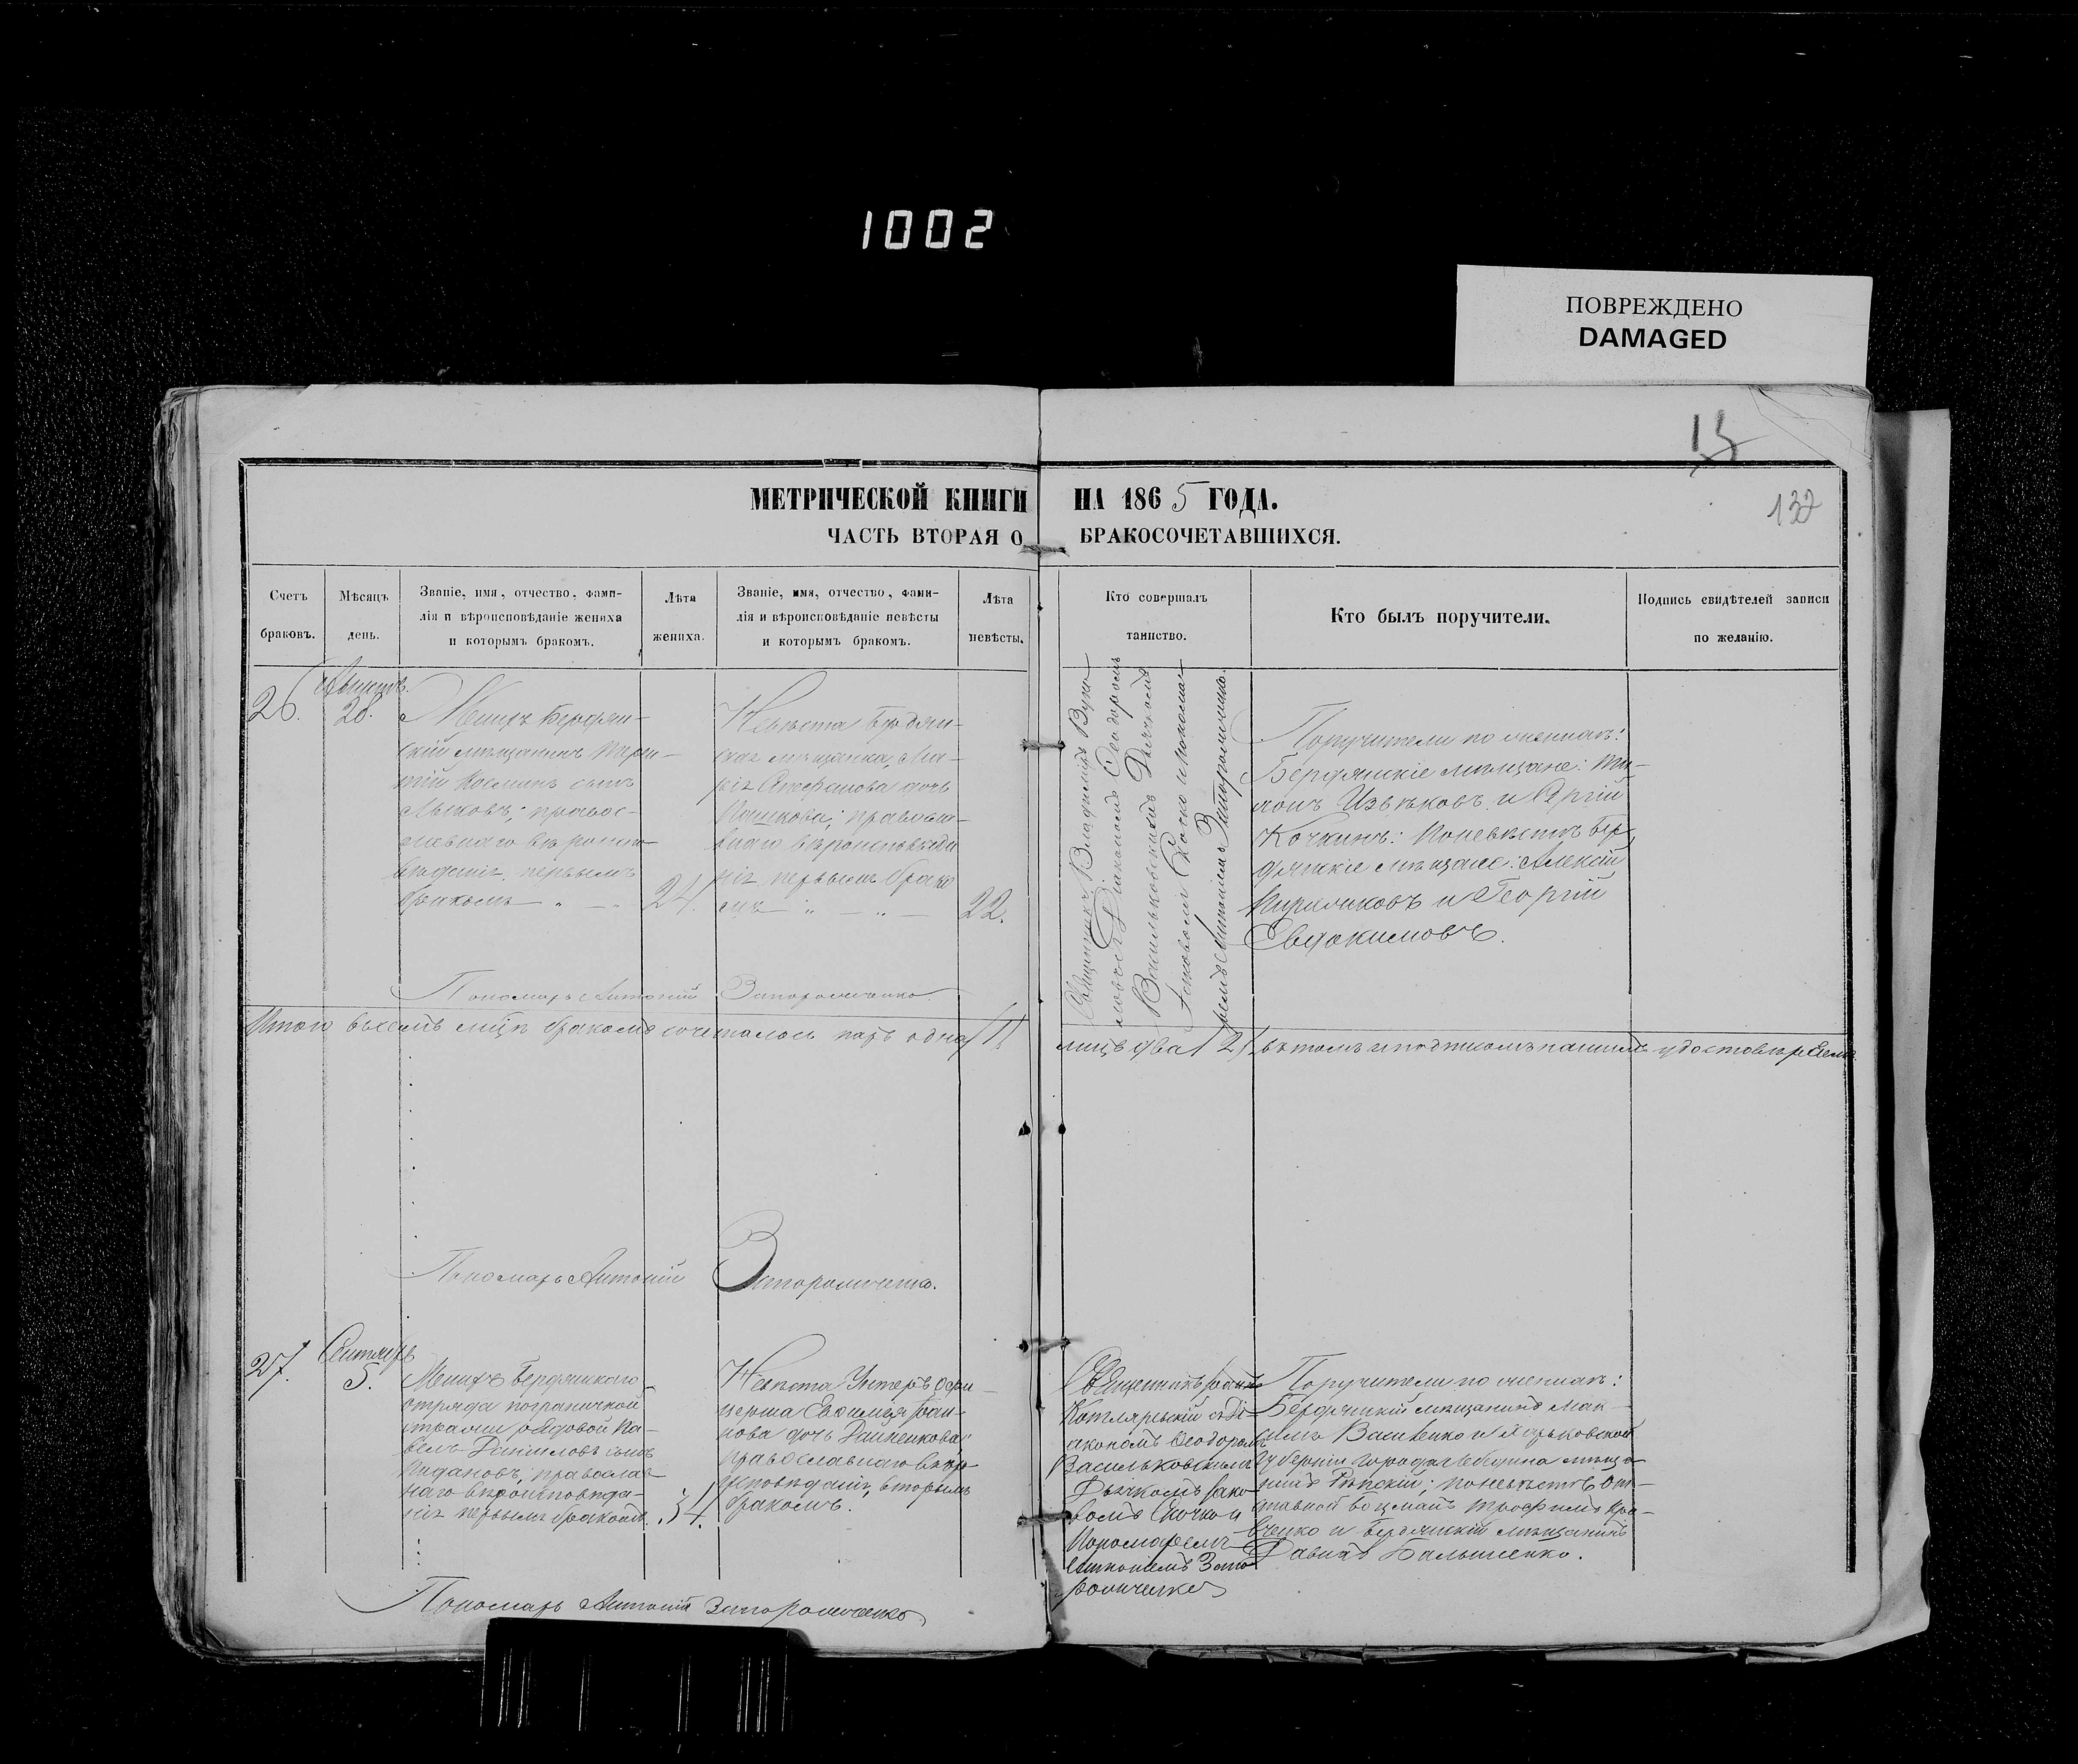 1002
ПОВРЕЖДЕНО
DAMAGED
15
132
МЕТРИЧЕСКОЙ КНИГИ НА 1865 ГОДА.
ЧАСТЬ ВТОРАЯ О БРАКОСОЧЕТАВШИХСЯ.
Счетъ браковъ.
Мѣсяцъ день.
Званіе, имя, отчество, фами-
лія и вѣроисповѣданіе жениха
и которымъ бракомъ.
Лѣта жениха.
Званіе, имя, отчество, фами-
лія и вѣроисповѣданіе невѣсты
и которымъ бракомъ.
Лѣта невѣсты.
Кто совершалъ
таинство.
Кто былъ поручители.
Подпись свидѣтелей записи
по желанію.
26.
28.
Бердян-
скій мѣщанинъ
сынъ
правос-
лавнаго вѣроиспо-
вѣданія, первымъ
бракомъ
24.
Невѣста Бердян-
ская мѣщанка, Ма-
рія Стефанова дочь
Пашкова, православ-
наго вѣроисповѣда
нія, первымъ брако
мъ
22.
Священникъ Владиміръ
Діакономъ Феодоромъ
Васильковскимъ Дьячкомъ
Іаковомъ и Понома-
ремъ Антоніемъ Запорожченко.
Поручители по женихѣ:
Бердянскіе мѣщане:
и Сергій
Кочкинъ: по невѣстѣ Бер-
дянскіе мѣщане: Алексій
и Георгій
Евдокимовъ.
Пономарь Антоній Запорожченко.
Итого всѣхъ лицъ бракомъ сочеталось паръ одна /1/
лицъ два /2/, въ томъ и подписомъ нашимъ удостовѣряемъ
Пономарь Антоній Запорожченко.
27.
Сентябрь
5.
Женихъ Бердянскаго
отряда пограничной
стражи рядовой Па-
велъ Даниловъ сынъ
православ-
наго вѣроисповѣда-
нія первымъ бракомъ.
34.
Невѣста Унтеръ Офи-
церша Евфимія Іоан-
нова дочь
православнаго вѣро-
исповѣданія, вторымъ
бракомъ.
Священникъ Іоаннъ
Котляревскій съ Ді-
акономъ Феодоромъ
Васильковскимъ
Дьячкомъ Іако-
вомъ и
Пономаремъ
Антоніемъ Запо-
рожченко
Поручители по женихѣ:
Бердянскій мѣщанинъ Мак-
симъ Василенко и Харьковской
губерніи города Лебедина мѣща-
нинъ Рѣпскій; по невѣстѣ От-
ставной боцманъ Трофимъ Кра-
вченко и Бердянскій мѣщанинъ
Давидъ Балышенко.
Пономарь Антоній Запорожченко